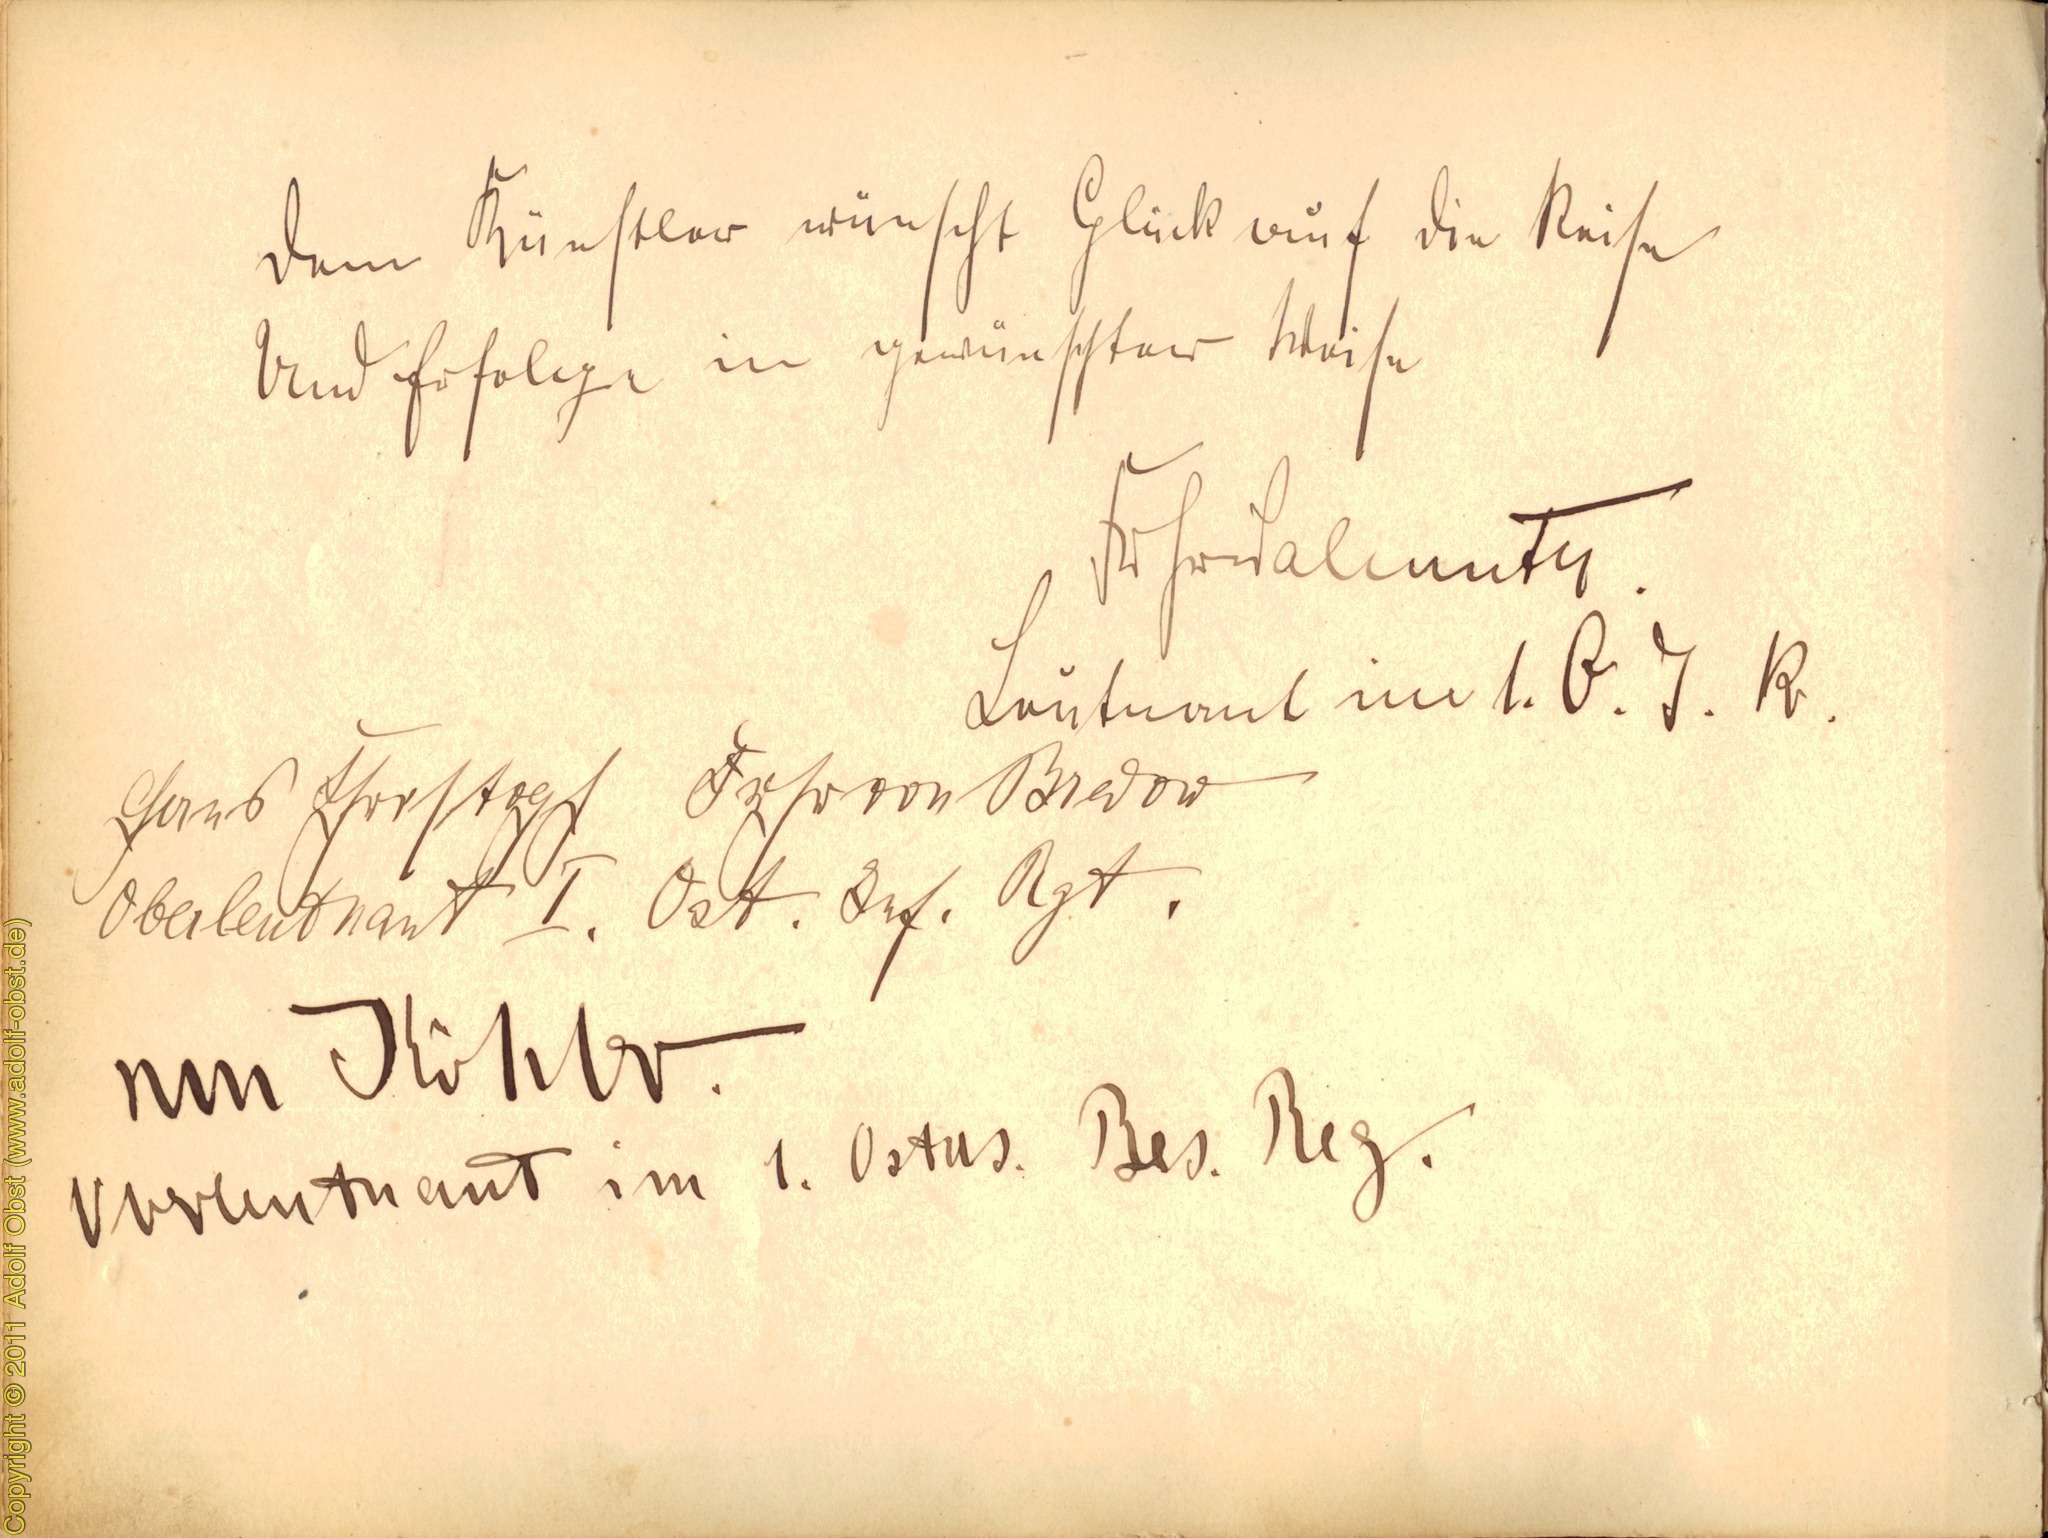 Dem Künstler wünscht Glück auf die Reise
Und Erfolge in gewünschter Weise
Leutnant im 1. O. I. R.
Hans Christoph Frhr von Bredow
Oberleutnant I. Ost. Inf. Rgt.
Köhler.
Oberleutnant im 1. Ostas. Bes. Reg.
Copyright © 2011 Adolf Obst (www.adolf-obst.de)